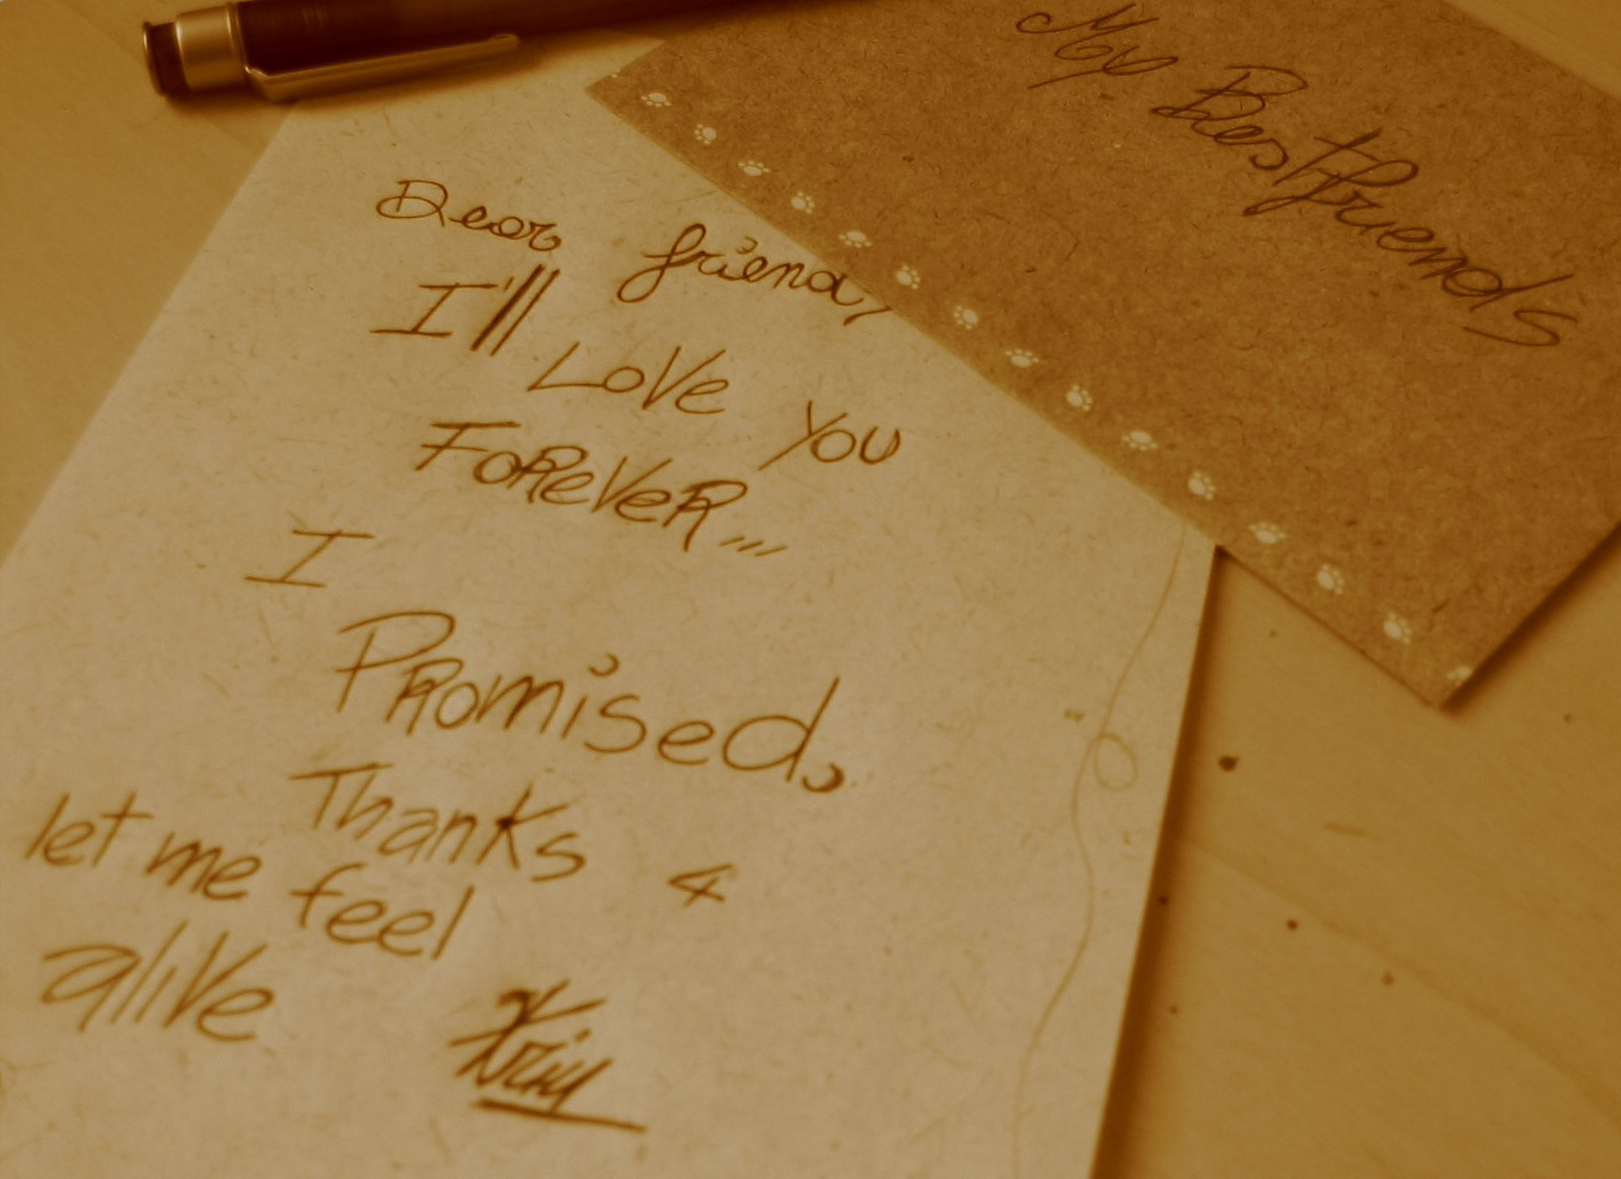 My Bestfriends
Dear friend,
I'll Love You
FOReVeR...
I
PRomised.
Thanks 4
let me feel
alive